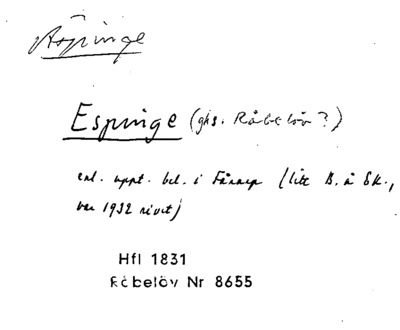 Äspinge
Espinge (ghs. Råbelöv?)
enl. uppt. bel. i Färlöv (litt B. å Sk.,
var 1932 rivet)
Hfl 1831
Råbelöv Nr 8655